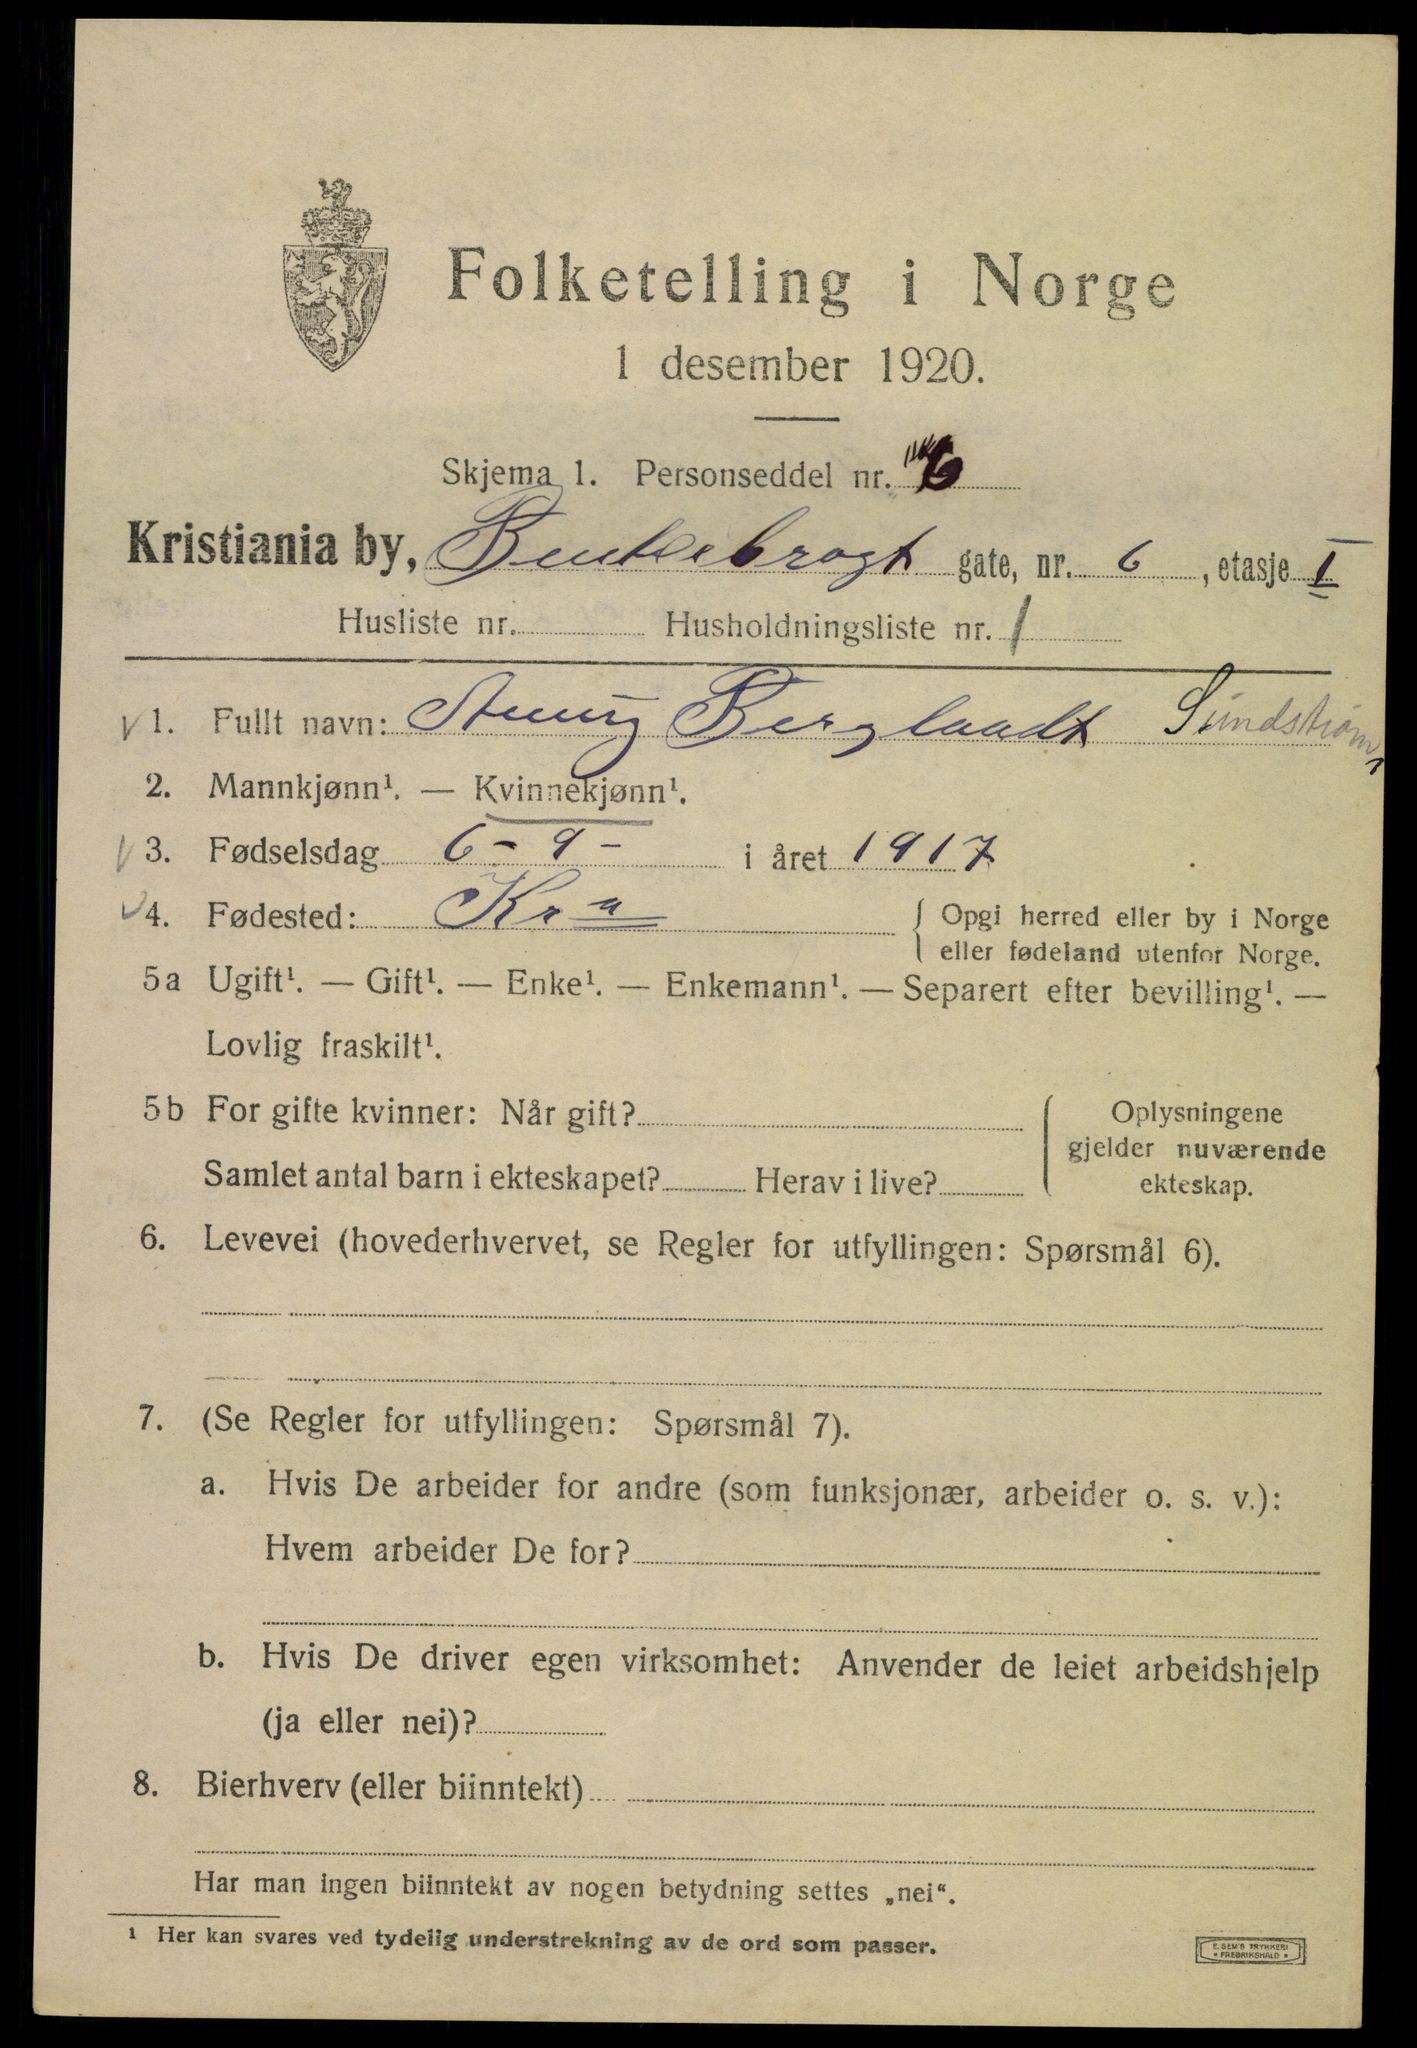 Folketelling i Norge
1 desember 1920.
Skjema 1. Personseddel nr. 6
Kristiania by, Bentsebrogt gate, nr. 6, etasje I
Husliste nr. Husholdningsliste nr. 1
1. Fullt navn: Berglaadt Sundstrøm
2. Mannkjønn¹. — Kvinnekjønn¹.
3. Fødselsdag 6 - 9 - i året 1917
4. Fødested: Kra { Opgi herred eller by i Norge
eller fødeland utenfor Norge.
5a Ugift¹. — Gift¹. — Enke¹. — Enkemann¹. — Separert efter bevilling¹. —
Lovlig fraskilt¹.
5b For gifte kvinner: Når gift?
Samlet antal barn i ekteskapet? Herav i live?
Oplysningene
gjelder nuværende
ekteskap.
6. Levevei (hovederhvervet, se Regler for utfyllingen: Spørsmål 6).
7. (Se Regler for utfyllingen: Spørsmål 7).
a. Hvis De arbeider for andre (som funksjonær, arbeider o. s. v.):
Hvem arbeider De for?
b. Hvis De driver egen virksomhet: Anvender de leiet arbeidshjelp
(ja eller nei)?
8. Bierhverv (eller biinntekt)
Har man ingen biinntekt av nogen betydning settes „nei“.
¹ Her kan svares ved tydelig understrekning av de ord som passer.
E. SEM'S TRYKKERI
FREDRIKSHALD